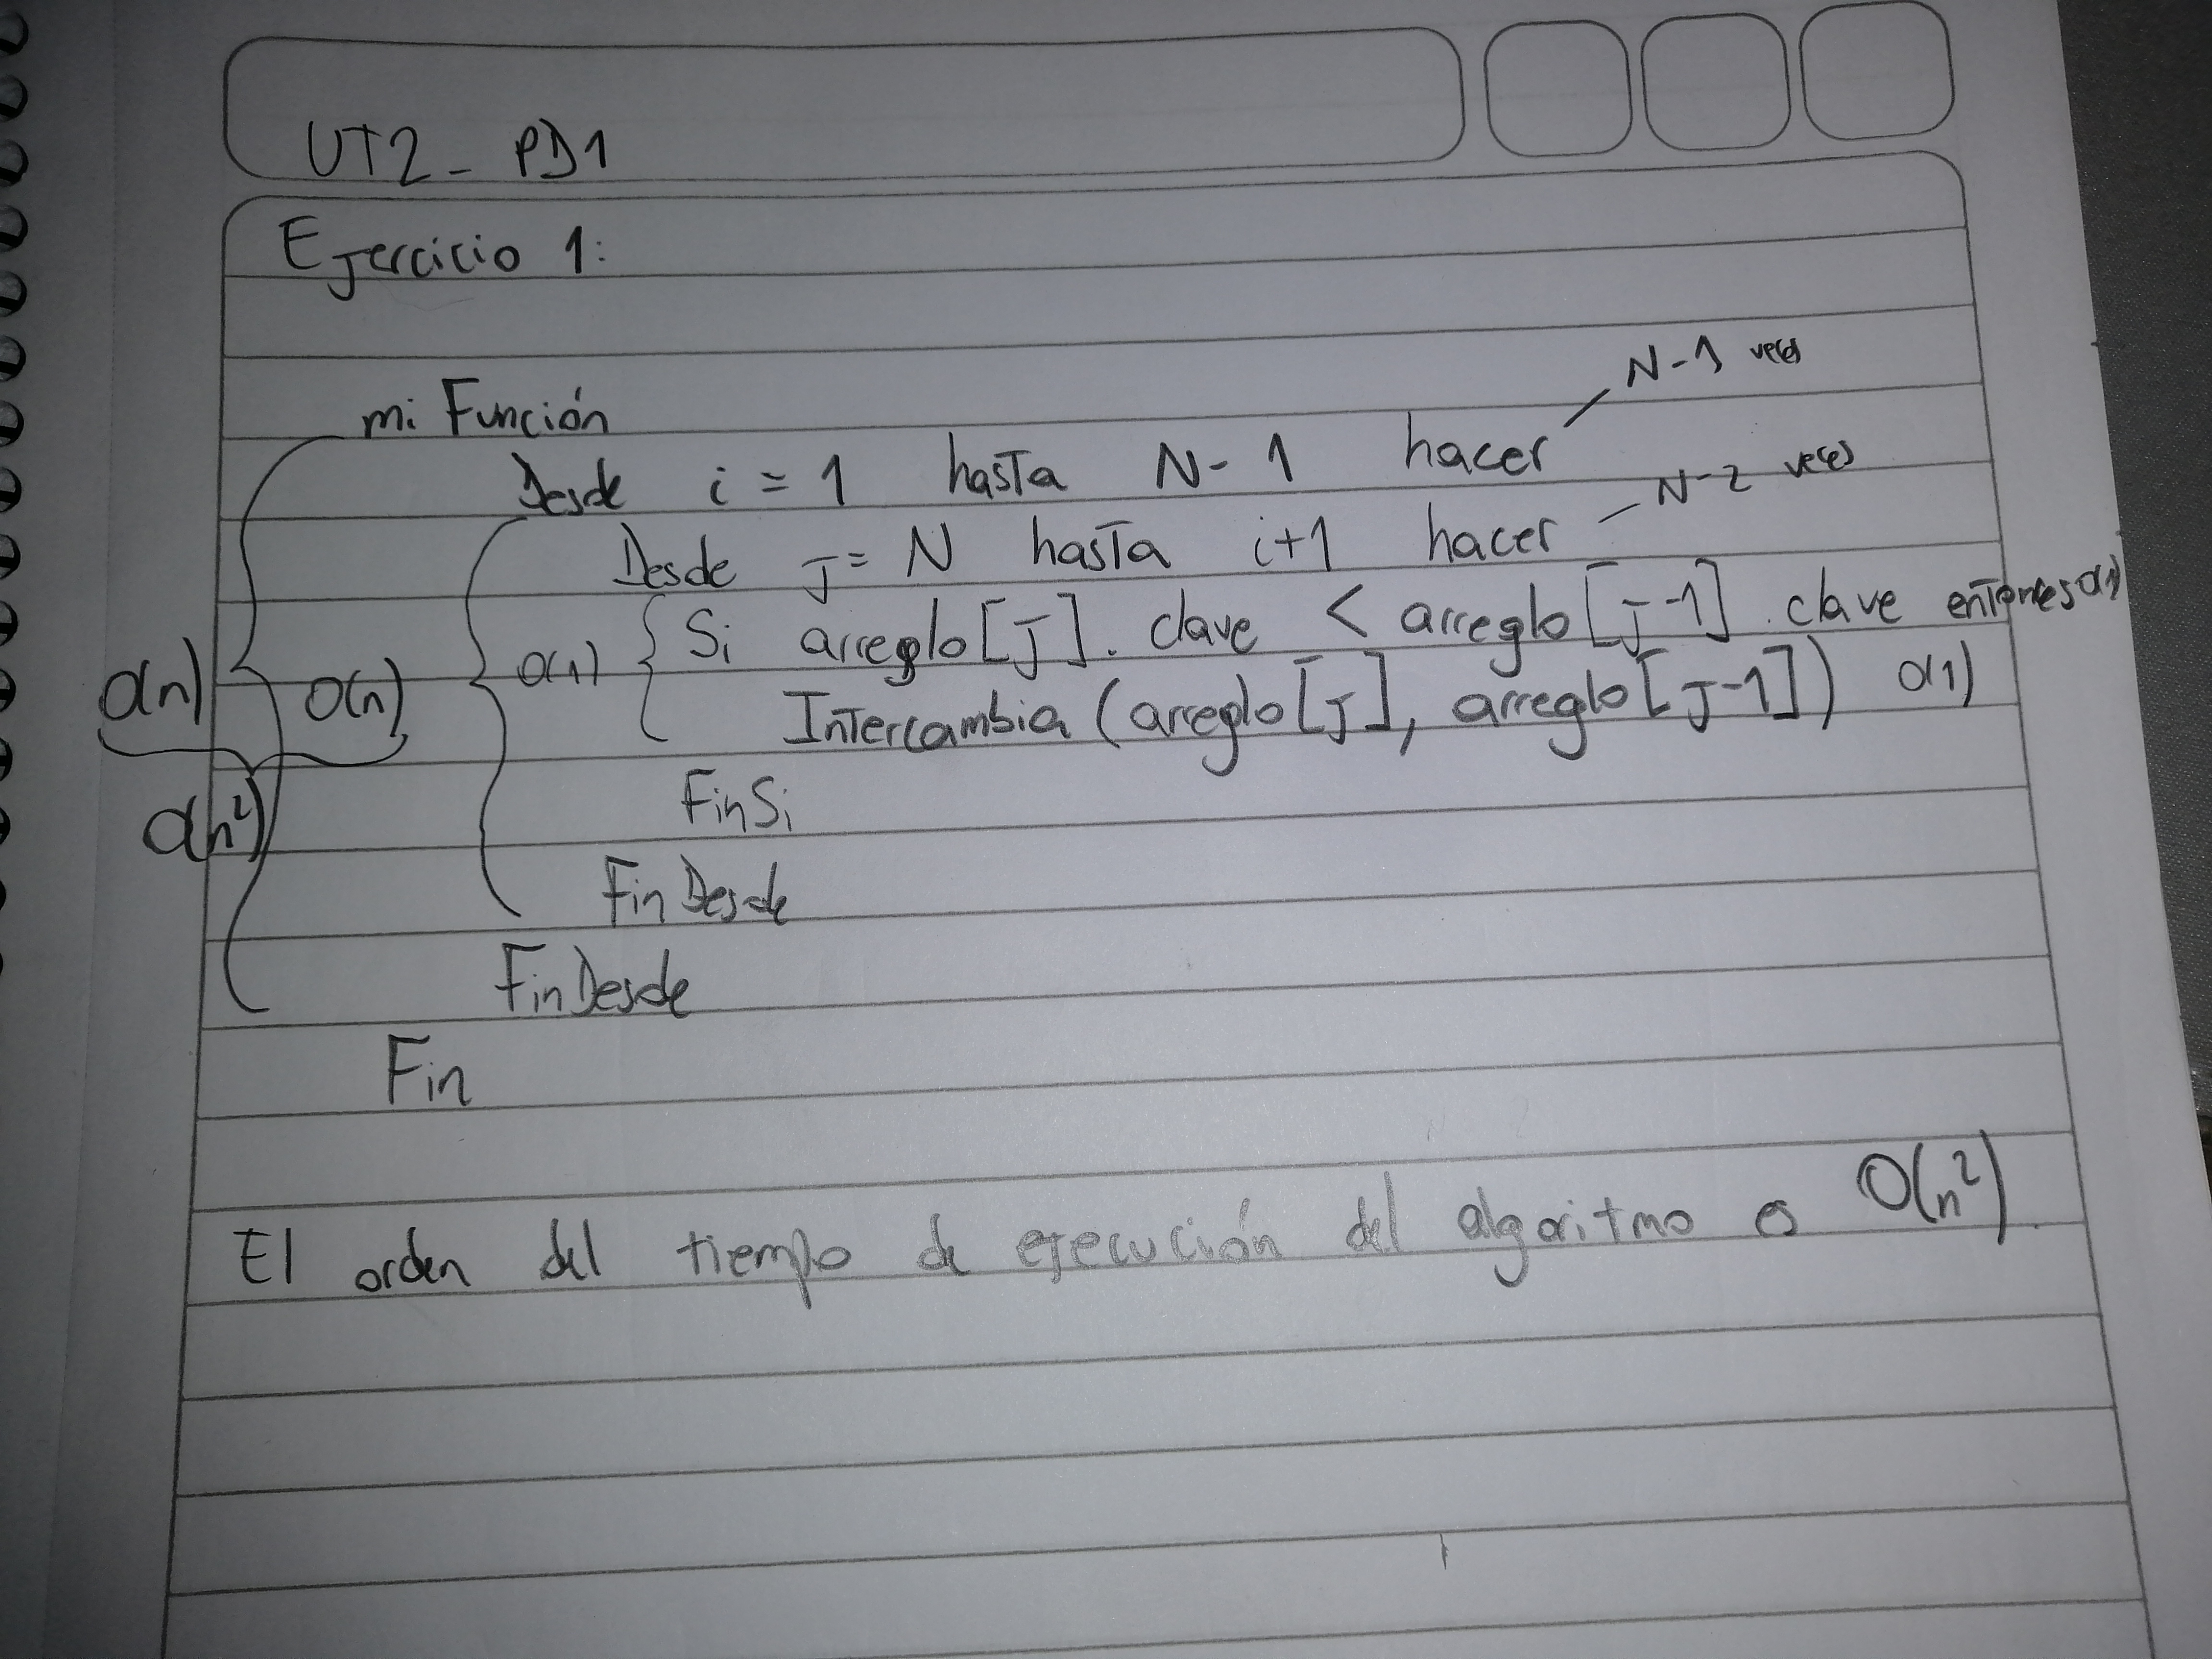 UT2_ PD1
Ejercicio 1:
N-1 veces
mi Función
Desde i = 1 hasta N-1 hacer
N-2 veces
Desde j = N hasta i+1 hacer
O(1) Si arreglo[j].clave < arreglo[j-1].clave entonces O(1)
O(n) O(n) Intercambia (arreglo[j], arreglo[j-1]) O(1)
O(n²) FinSi
Fin Desde
FinDesde
Fin
El orden del tiempo de ejecución del algoritmo es O(n²).